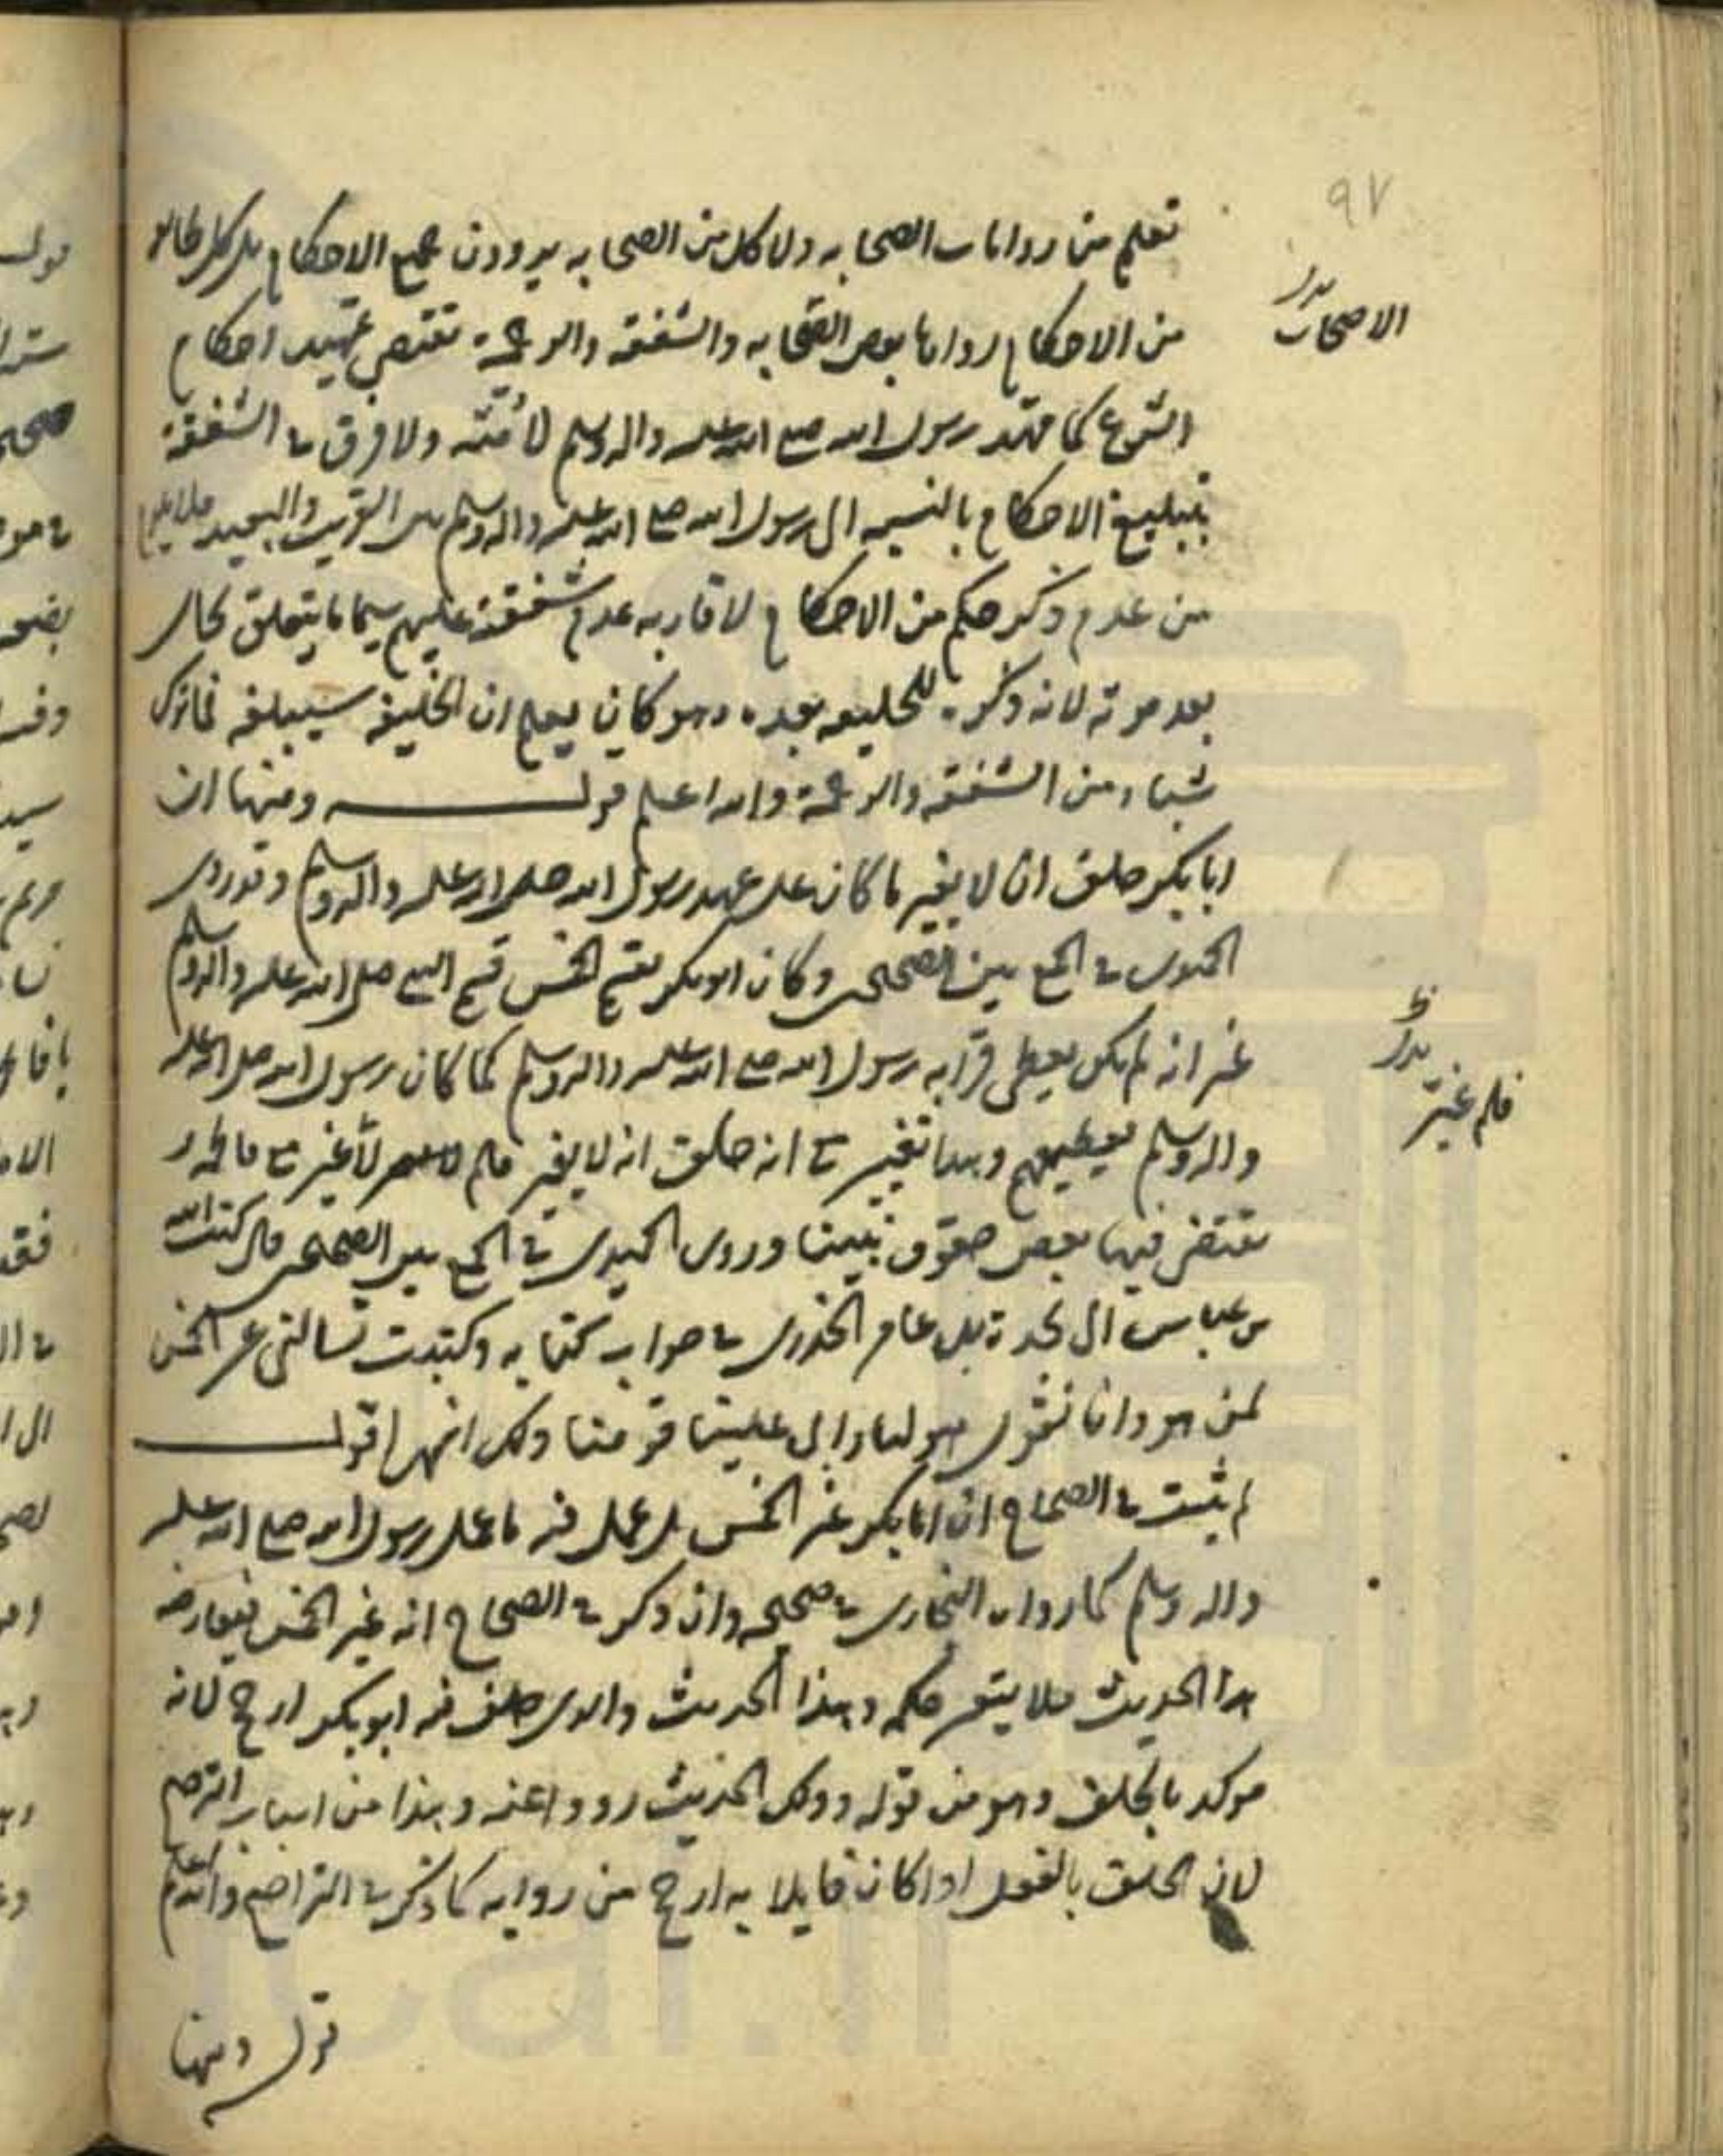 ٩٧
تعلم من روايات الصحابه ولا كل من الصحابه يروون جميع الاحكام بل كل
بدل
الاصحاب
من الاحكام رواها بعض الصحابه والشفقه والرحمة تقتضي تمهيد احكام
الشرع كما مهّد رسول الله صلى الله عليه واله وسلم لامّته ولا فرق في الشفقة
بتبليغ الاحكام بالنسبه الى رسول الله صلى الله عليه واله وسلم بين القريب والبعيد فلا يلزم
من عدم ذكر حكم من الاحكام لاقاربه عدم شفقته عليهم سيما ما يتعلق بحال
بعد موته لانه ذكره للخليفه بعده وهو كان يعلم ان الخليفه سيبلغه فما ترك
شيئا من الشفقه والرحمة والله اعلم قوله ومنها ان
ابا بكر حلف ان لا يغير ما كان على عهد رسول الله صلى الله عليه واله وسلم وقد روى
الحميدى في الجمع بين الصحيحين وكان ابو بكر يقسم الخمس قسم النبي صلى الله عليه واله وسلم
غير انه لم يكن يعطى قرابه رسول الله صلى الله عليه واله وسلم كما كان رسول الله صلى الله عليه
بدل
فلم غير
واله وسلم يعطيهم وهذا تغيير مع انه حلف انه لا يغير فلم لا غير مع فاطمه
تقتضى فيها بعض حقوق نبينا وروى الحميدى في الجمع بين الصحيحين قال كتب
بن عباس الى نجدة بن عامر الحذورى في جواب كتابه وكتبت تسالنى عن الخمس
لمن هو وانا نقول هو لنا وابى علينا قومنا ذلك انتهى اقول
لم يثبت في الصحاح ان ابا بكر غير الخمس بل عمل فيه ما عمل رسول الله صلى الله عليه
واله وسلم كما رواه البخارى في صحيحه وان ذكر في الصحاح انه غير الخمس فيعارضه
هذا الحديث فلا يتم حكمه وهذا الحديث والذى حلف فيه ابو بكر ارجح لانه
موكد بالحلف وهو من قوله وذلك الحديث رووا عنه وهذا من اسباب الترجيح
لان الحلف بالفعل اذا كان قايلا به ارجح من روايه كما ذكر في التراجيح والله اعلم
قوله ومنها